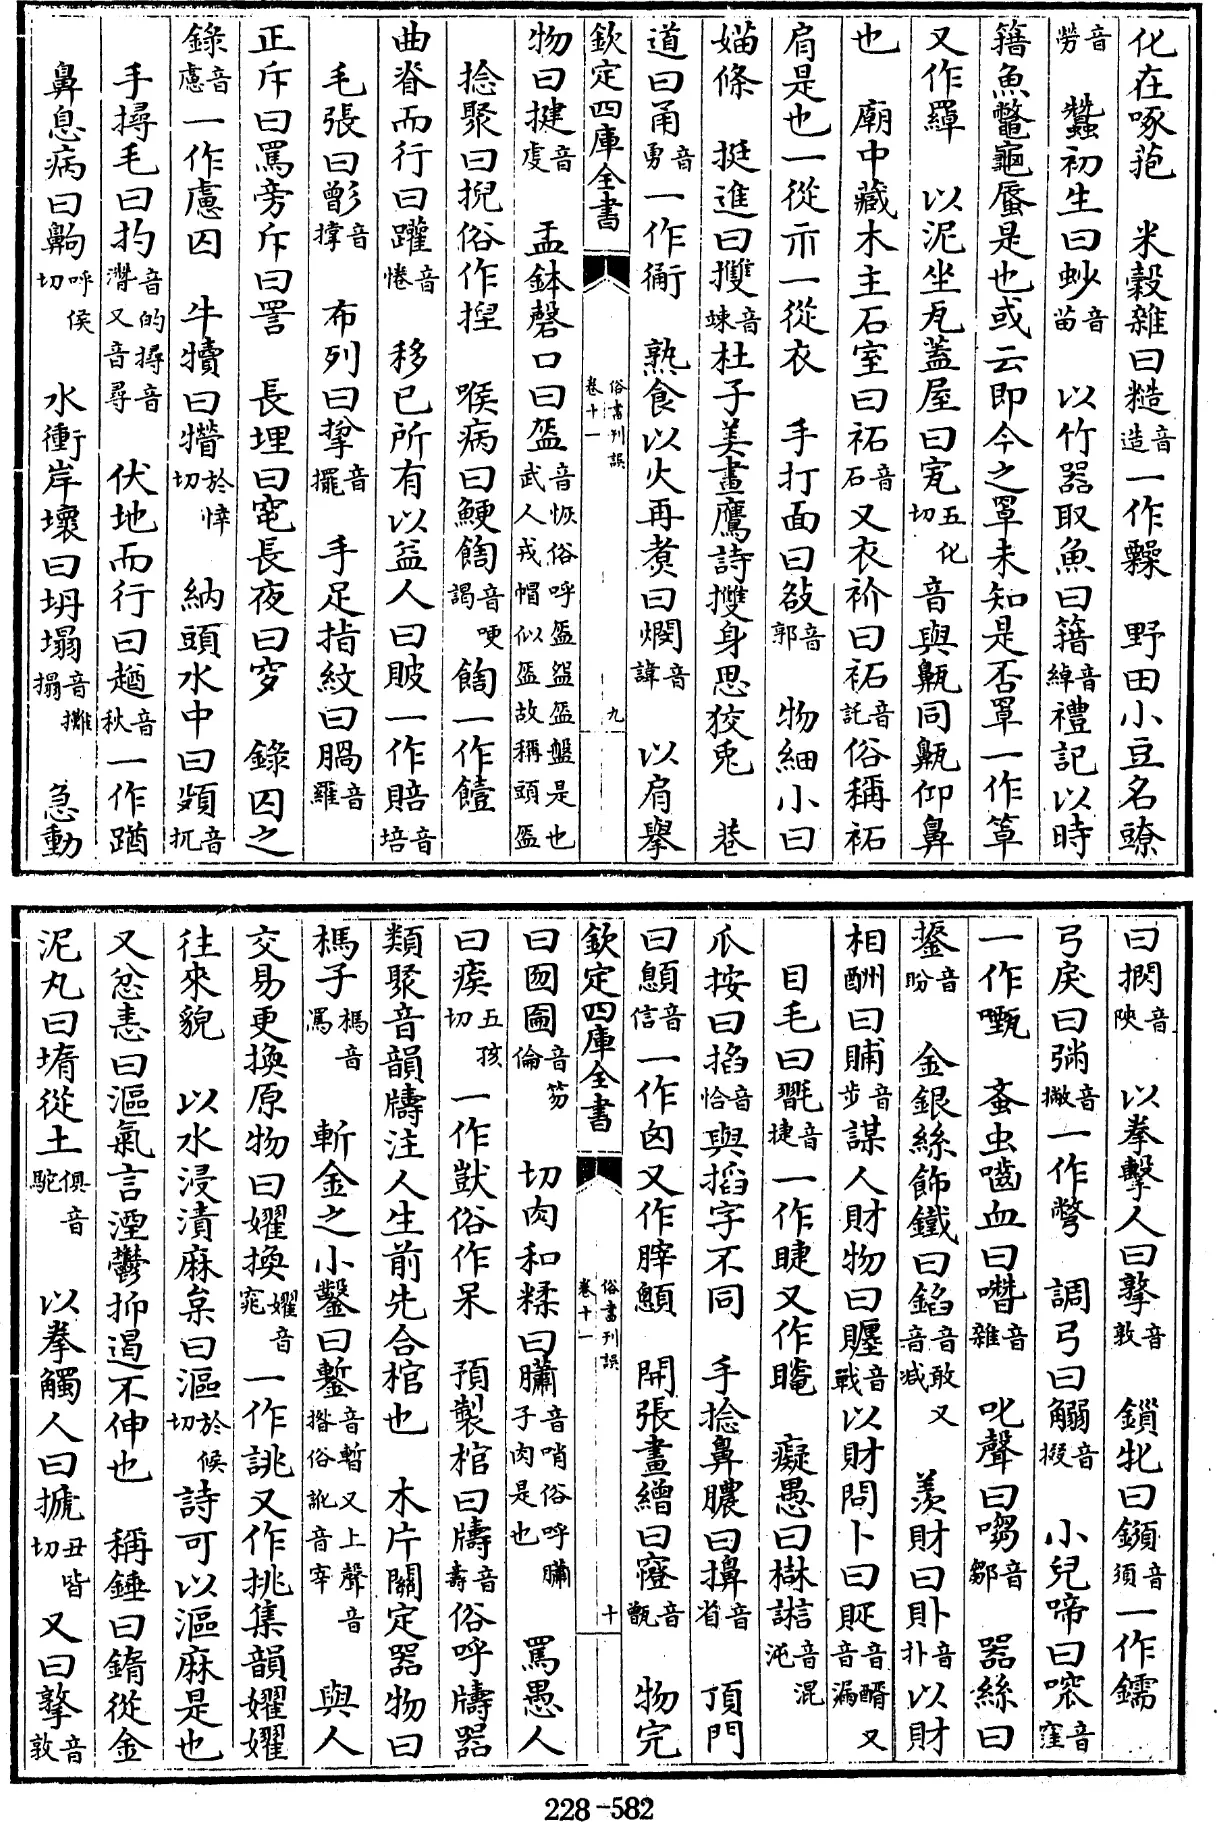 化在啄菢　米榖雜曰糙音造一作䵆　野田小豆名䝀音
勞　蠶初生曰䖢音苗　以竹器取魚曰籗音綽禮記以時
籍魚鼈龜蜃是也或云即今之罩未知是否罩一作䈇
又作羄　以泥坐瓦蓋屋曰㼘五化切　音與甈同甈仰鼻
也　廟中藏木主石室曰祏音石又衣衸曰袥音託俗稱袥
肩是也一從示一從衣　手打面曰㪃音郭　物細小曰
媌條　挺進曰㩳音竦杜子美畫鷹詩㩳身思狡兔　巷
道曰甬音勇一作衕　熟食以火再煑曰爓音諱　以肩舉
欽定四庫全書　俗書刊誤　卷十一　九
物曰揵音虔　盂鉢磬口曰盔音恢俗呼盔盌盔盤是也武人戎帽似盔故稱頭盔
捻聚曰掜俗作揑　喉病曰鯁餲音哽謁　餲一作饐
曲脊而行曰躍音惓　移已所有以益人曰賟一作賠音培
毛張曰髿音撑　布列曰㨢音擺　手足指紋曰腡音羅
正斥曰罵旁斥曰詈　長埋曰窀長夜曰穸　錄囚之
錄音慮一作慮囚　牛犢曰㹚於悻切　納頭水中曰頞音抓
手撏毛曰扚音的撏音潸又音尋　伏地而行曰趥音秋一作蹖
鼻息病曰齁呼侯切　水衝岸壞曰坍塌音攤塌　急動
曰㨫音陜　以拳擊人曰撉音敦　鎖牝曰鑐音須一作鑐
弓戾曰㢼音撇一作彆　調弓曰䚥音掇　小兒啼曰㗀音窪
一作㖸　蚤虫嚙血曰噆音雜　叱聲曰㗙音鄒　器絲曰
㼂音盼　金銀絲飾鐵曰錎音敢又音减　羡財曰䝵音扑以財
相酬曰賻音步謀人財物曰䝺音戰以財問卜曰䝰音醑又音漏
目毛曰毣音捷一作睫又作䁪　癡愚曰惏䛼音混沌
爪按曰掐音恰與搯字不同　手捻鼻膿曰擤音省　頂門
曰顖音信一作囟又作䏹顖　開張畫繒曰㡧音甑　物完
欽定四庫全書　俗書刊誤　卷十一　十
曰囫圇音笏倫　切肉和糅曰䐹音哨俗呼䐹子肉是也　罵愚人
曰㾨五孩切　一作獃俗作呆　預製棺曰㡤音壽俗呼㡤器
類聚音韻㡤注人生前先合棺也　木片關定器物曰
榪子榪音罵　斬金之小鑿曰鏨音暫又上聲㨻俗訛音宰　與人
交易更換原物曰嬥換嬥音窕　一作誂又作挑集韻嬥嬥
往來貌　以水浸漬麻枲曰漚於候切　詩可以漚麻是也
又忿恚曰漚氣言湮鬱抑遏不伸也　稱錘曰鏅從金
泥丸曰堶從土俱音駝　以拳觸人曰搋丑皆切　又曰撉音敦
228-582